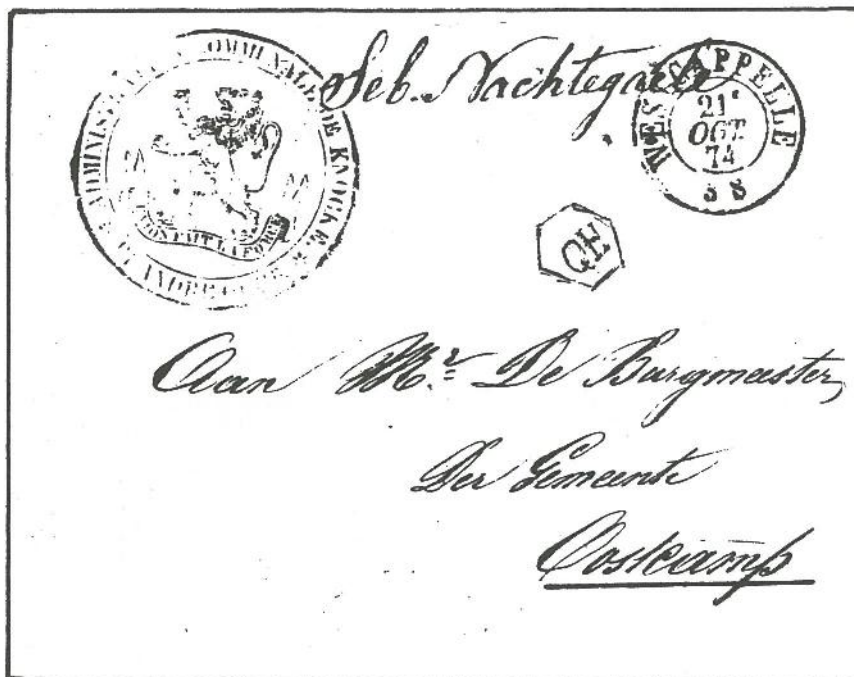 ADMINISTRATION COMMUNALE DE KNOCKE
UNION FAIT LA FORCE
Seb. Nachtegaele
WESTCAPPELLE
21
OCT
74
Aan Mr De Burgmeester,
Der Gemeente
Oostkamp